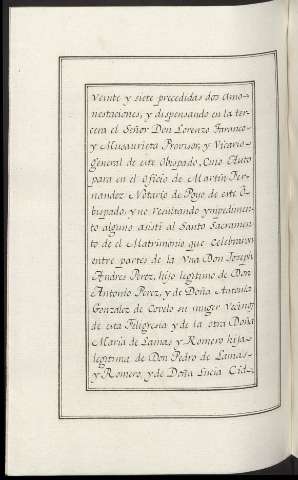 veinte y siete precedidas dos Amo-
nestaciones, y dispensando en la ter-
cera el Señor Don Lorenzo Taranco
y Musaurieta Provisor, y Vicario
General de este Obispado, Cuio Auto
para en el Oficio de Martin Fer-
nandez Notario de Poyo de este O-
bispado, y no resultando ympedimen-
to alguno asistí al Santo Sacramen-
to de el Matrimonio que Celebraron
entre partes de la Vna Don Joseph
Andres Perez, hijo legitimo de Don
Antonio Perez, y de Doña Antonia
Gonzalez de Covelo su muger Vecinos
de esta Feligresia y de la otra Doña
Maria de Lamas y Romero hija
legitima de Don Pedro de Lamas
y Romero, y de Doña Lucia Cid-